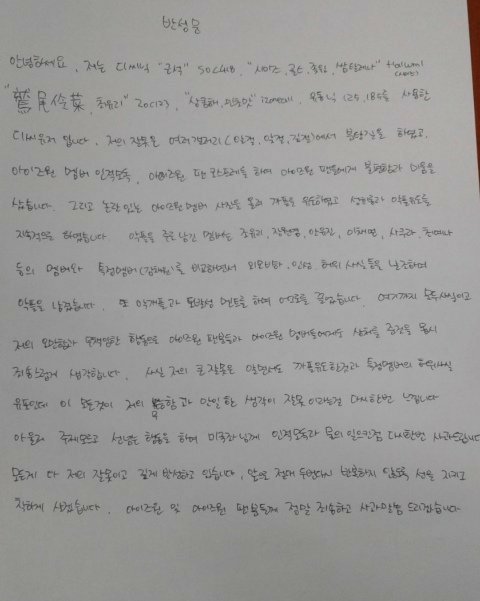 반성문
안녕하세요, 저는 디씨닉 "금석" SOC418, "시이즈, 골스, 죠윈,
" 초유리" 유동닉 125.185를 사용한
디씨유저 입니다. 저의 잘못은 여러갤러리( )에서 분탕질을 하였고,
아이즈원 멤버 인격모독, 아이즈원 팬 코스프레를 하여 아이즈원 팬들에게 불편함과 미움을
샀습니다. 그리고 논란 있는 아이즈원멤버 사진을 올려 까플을 유도하였고 성희롱과 악플유도를
지속적으로 하였습니다 악플을 주로 남긴 멤버는 조유리, 장원영, 안유진, 이채연, 사쿠라, 최예나
등의 멤버와 특정멤버(김채원)를 비교하면서 외모비하, 인성, 허위사실 등을 날조하여
악플을 남겼습니다. 또 악개들과 도발성 멘트를 하며 어그로를 끌었습니다. 여기까지 모두사실이고
저의 오만함과 무책임한 행동으로 아이즈원 팬분들과 아이즈원 멤버들에게도 상처를 준것을 몹시
죄송스럽게 생각합니다. 사실 저의 큰 잘못은 알면서도 까플유도한것과 특정멤버의 허위사실
유포인데 이 모든것이 저의 과 안일한 생각이 잘못 이라는걸 다시한번 느낍니다
아울러 주제모르고 선넘는 행동을 하여 미국라님께 인격모독과 물의 일으킨점 다시한번 사과드립니다
모든게 다 저의 잘못이고 깊게 반성하고 있습니다, 앞으로 절대 두번다시 반복하지 않도록 선을 지키고
착하게 살겠습니다. 아이즈원 및 아이즈원 팬분들께 정말 죄송하고 사과말씀 드리겠습니다